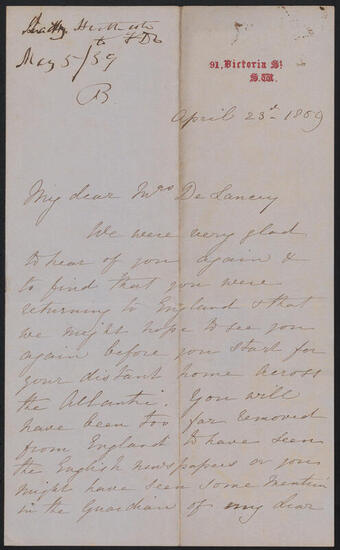 to
May 5/59
B
91, Victoria St
S.W.
April 23d 1859
My dear Mrs De Lancey
We were very glad
to hear of you again &
to find that you were
returning to England & that
we might hope to see you
again before you start for
your distant home across
the Atlantic. You will
have been too far removed
from England to have seen
the English newspapers or you
might have seen some mention
in the Guardian of my dear